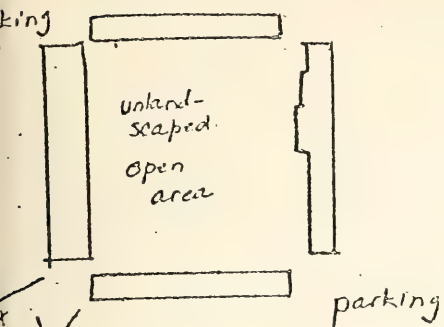 king
unland-
scaped
open
area
parking